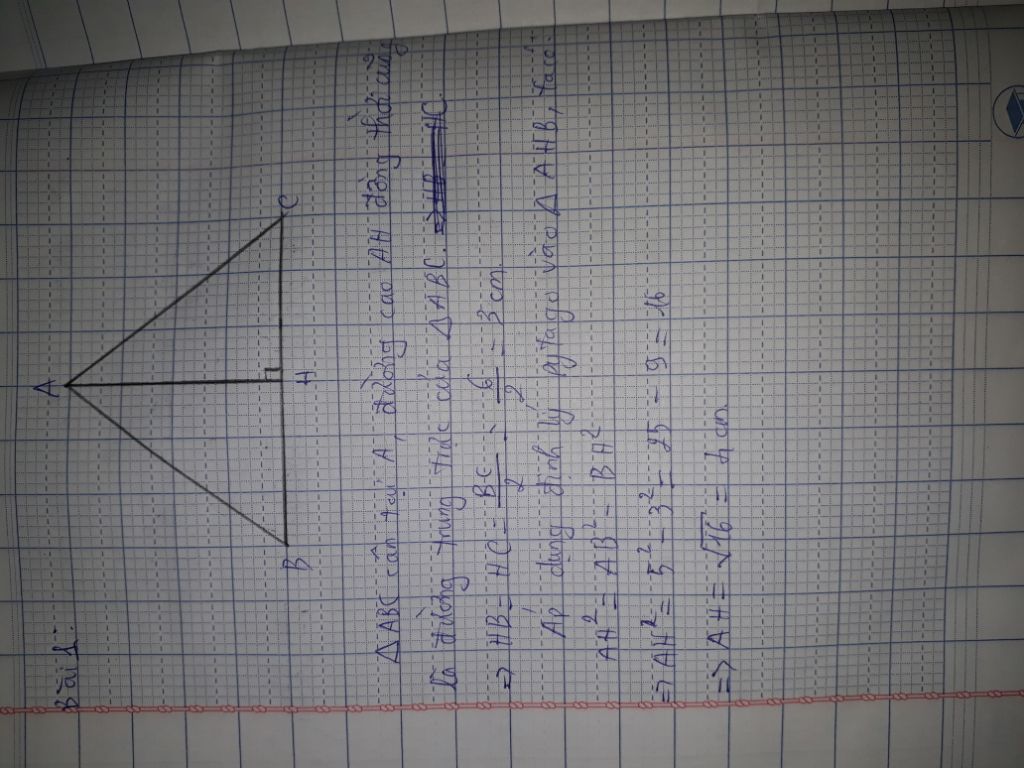 Bài 1:
A
B
H
C
ΔABC cân tại A, đường cao AH đồng thời cũng
là đường trung trực của ΔABC. => HB = HC
=> HB = HC = BC/2 = 6/2 = 3 cm
Áp dụng định lý pytago vào Δ AHB, ta có:
AH² = AB² - BH²
=> AH² = 5² - 3² = 25 - 9 = 16
=> AH = √16 = 4 cm